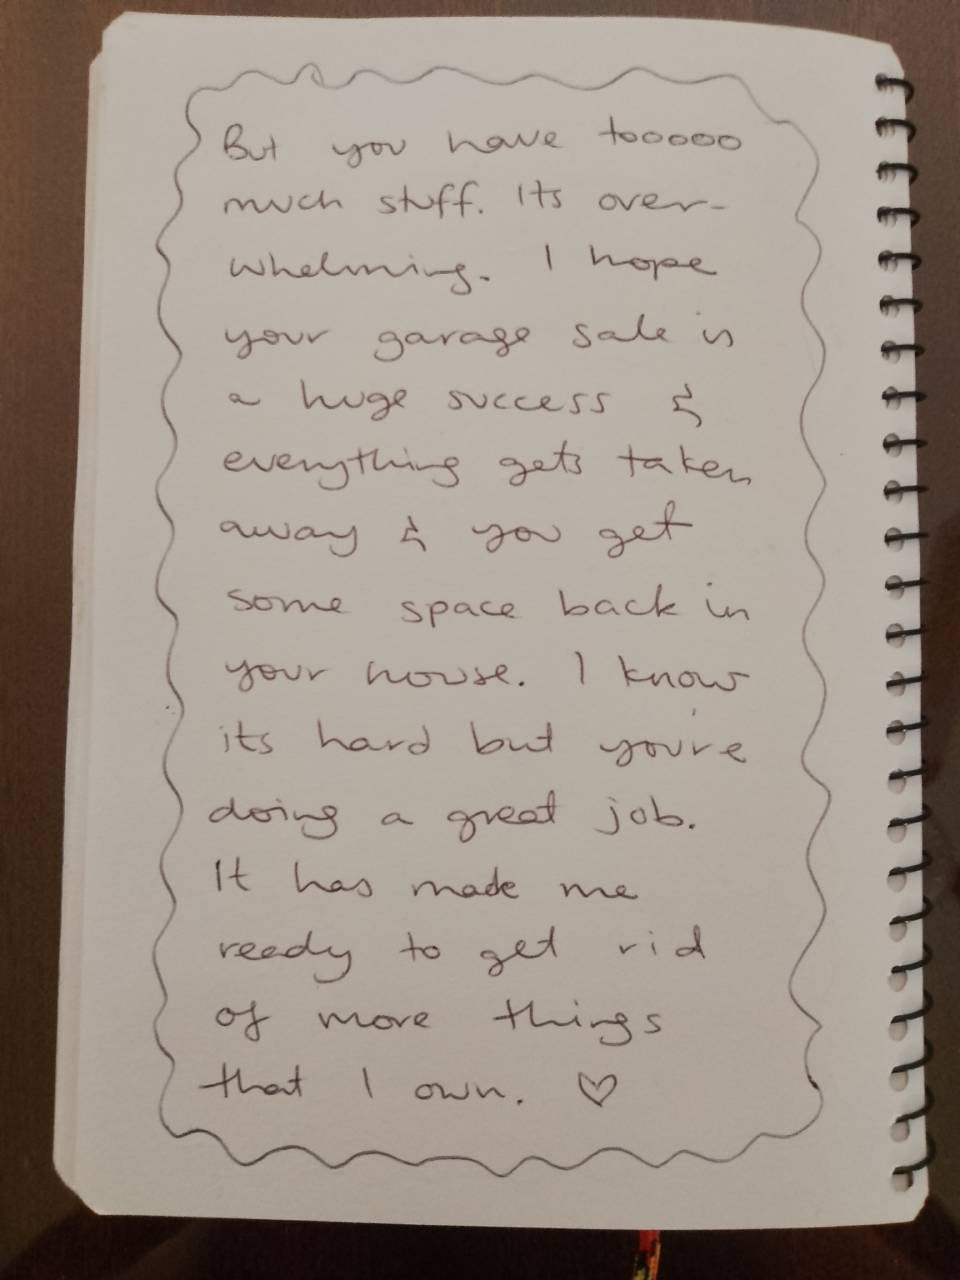 But you have tooooo
much stuff. Its over-
whelming. I hope
your garage sale is
a huge success &
everything gets taken
away & you get
some space back in
your house. I know
its hard but you're
doing a great job.
It has made me
ready to get rid
of more things
that I own. ♡